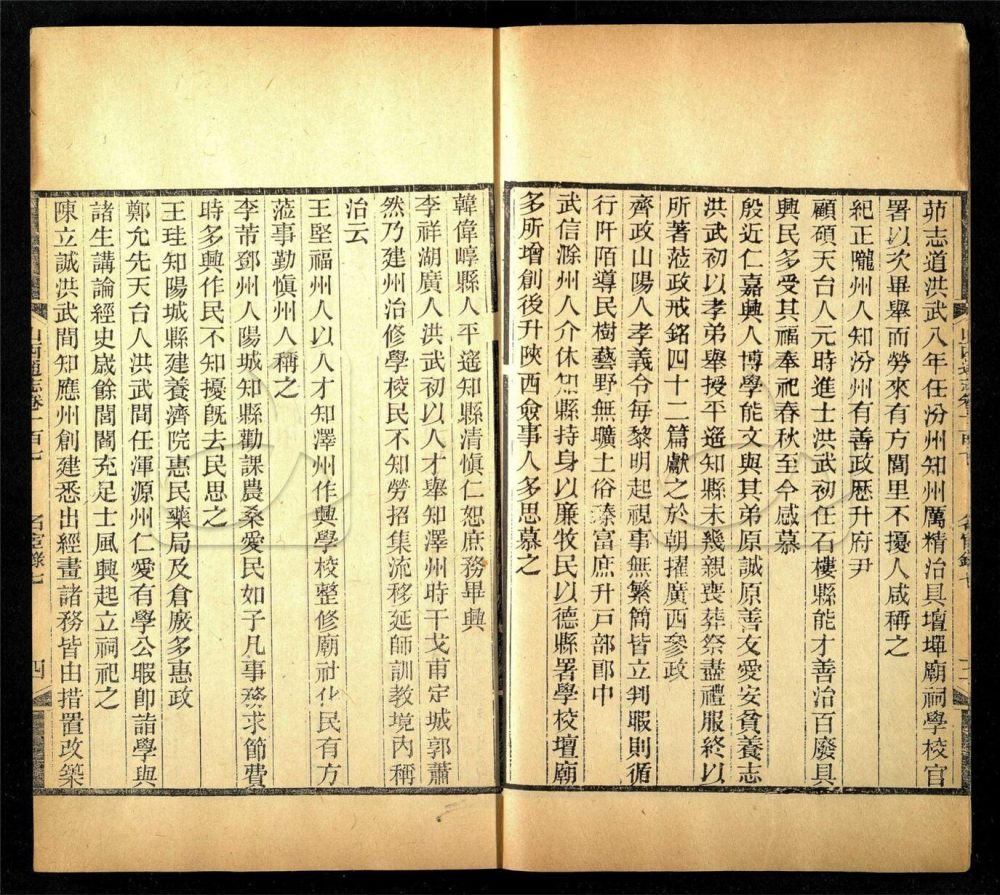 茆志道洪武八年任汾州知州厲精治具壇墠廟祠學校官
署以次畢舉而勞來有方閭里不擾人咸稱之
紀正隴州人知汾州有善政歷升府尹
顧碩天台人元時進士洪武初任石樓縣能才善治百廢具
興民多受其福奉祀春秋至今感慕
殷近仁嘉興人博學能文與其弟原誠原善友愛安貧養志
洪武初以孝弟舉授平遙知縣未幾親喪葬祭盡禮服終以
所著蒞政戒銘四十二篇獻之於朝擢廣西參政
齊政山陽人孝義令每黎明起視事無繁簡皆立判暇則循
行阡陌導民樹藝野無曠土俗臻富庶升戸部郎中
武信滁州人介休知縣持身以廉牧民以德縣署學校壇廟
多所增創後升陝西僉事人多思慕之
山西通志卷一百七 名宦錄七 四
韓偉崞縣人平遙知縣清愼仁恕庶務畢興
李祥湖廣人洪武初以人才舉知澤州時干戈甫定城郭蕭
然乃建州治修學校民不知勞招集流移延師訓教境内稱
治云
王堅福州人以人才知澤州作興學校整修廟社化民有方
蒞事勤愼州人稱之
李芾鄧州人陽城知縣勸課農桑愛民如子凡事務求節費
時多興作民不知擾既去民思之
王珪知陽城縣建養濟院惠民藥局及倉厫多惠政
鄭允先天台人洪武間任渾源州仁愛有學公暇卽詣學與
諸生講論經史歲餘閭閻充足士風興起立祠祀之
陳立誠洪武間知應州創建悉出經畫諸務皆由措置改築